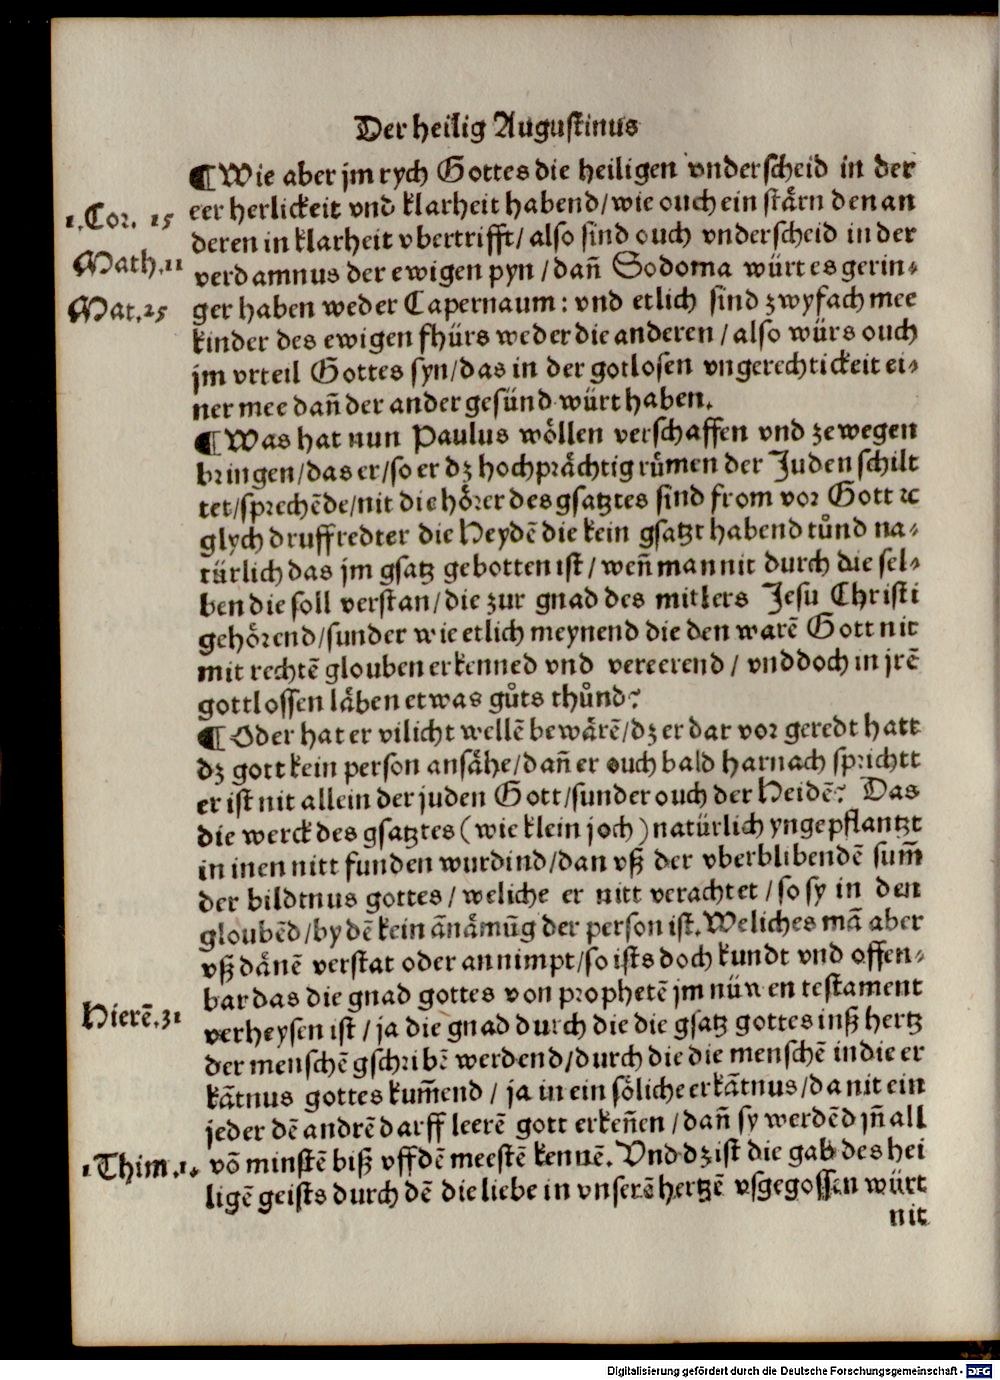 Der heilig Augustinus
¶ Wie aber jm rych Gottes die heiligen vnderscheid in der
1.Cor. 15
eer herlickeit vnd klarheit habend/wie ouch ein stärn den an
deren in klarheit vbertrifft/ also sind ouch vnderscheid in der
Math.11
verdamnus der ewigen pyn/dañ Sodoma würt es gerin⸗
Mat.25
ger haben weder Capernaum: vnd etlich sind zwyfach mee
kinder des ewigen fhürs weder die anderen/also würs ouch
jm vrteil Gottes syn/das in der gotlosen vngerechtickeit ei⸗
ner mee dañ der ander gesünd würt haben.
¶ Was hat nun Paulus wöllen verschaffen vnd zewegen
bringen/das er/so er dz hochprächtig rümen der Juden schilt
tet/sprechēde/nit die hörer des gsatztes sind from vor Gott ꝛc
glych druff redter die Heydē die kein gsatzt habend tůnd na⸗
türlich das jm gsatz gebotten ist/weñ man nit durch die sel⸗
ben die soll verstan/die zur gnad des mitlers Jesu Christi
gehörend/sunder wie etlich meynend die den warē Gott nit
mit rechtē glouben erkenned vnd vereerend/ vnd doch in jrē
gottlossen läben etwas gůts thůnd?
¶ Oder hat er vilicht wellē bewärē/dz er dar vor geredt hatt
dz gott kein person ansähe/dañ er ouch bald harnach sprichtt
er ist nit allein der juden Gott/sunder ouch der Heidē? Das
die werck des gsatztes (wie klein joch) natürlich yngepflantzt
in inen nitt funden wurdind/dan vß der vberblibendē sum̄
der bildtnus gottes/weliche er nitt verachtet/so sy in den
gloubēd/by dē kein ānämūg der person ist. Weliches mā aber
vß dänē verstat oder annimpt/so ists doch kundt vnd offen⸗
bar das die gnad gottes von prophetē jm nüwen testament
Hierē.31
verheysen ist/ja die gnad durch die die gsatz gottes inß hertz
der menschē gschribē werdend/durch die die menschē in die er
kātnus gottes kum̄end/ ja in ein söliche erkātnus/da nit ein
jeder dē andrē darff leerē gott erkeñen/dañ sy werdēd jñ all
1.Thim.1.
vō minstē biß vffdē meestē kennē. Vnd dz ist die gab des hei
ligē geists durch dē die liebe in vnserē hertzē vsgegossen würt
nit
Digitalisierung gefördert durch die Deutsche Forschungsgemeinschaft - DFG